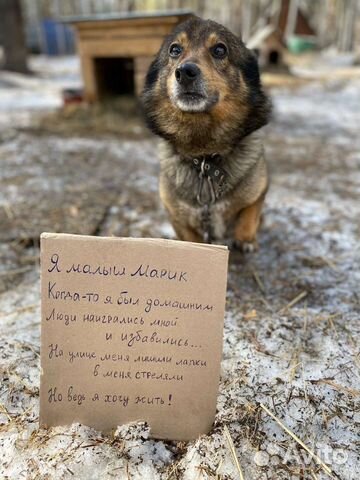 Я малыш Марик
Когда-то я был домашним
Люди наигрались мной
и избавились...
На улице меня лишили лапки
в меня стреляли
Но ведь я хочу жить!
Avito